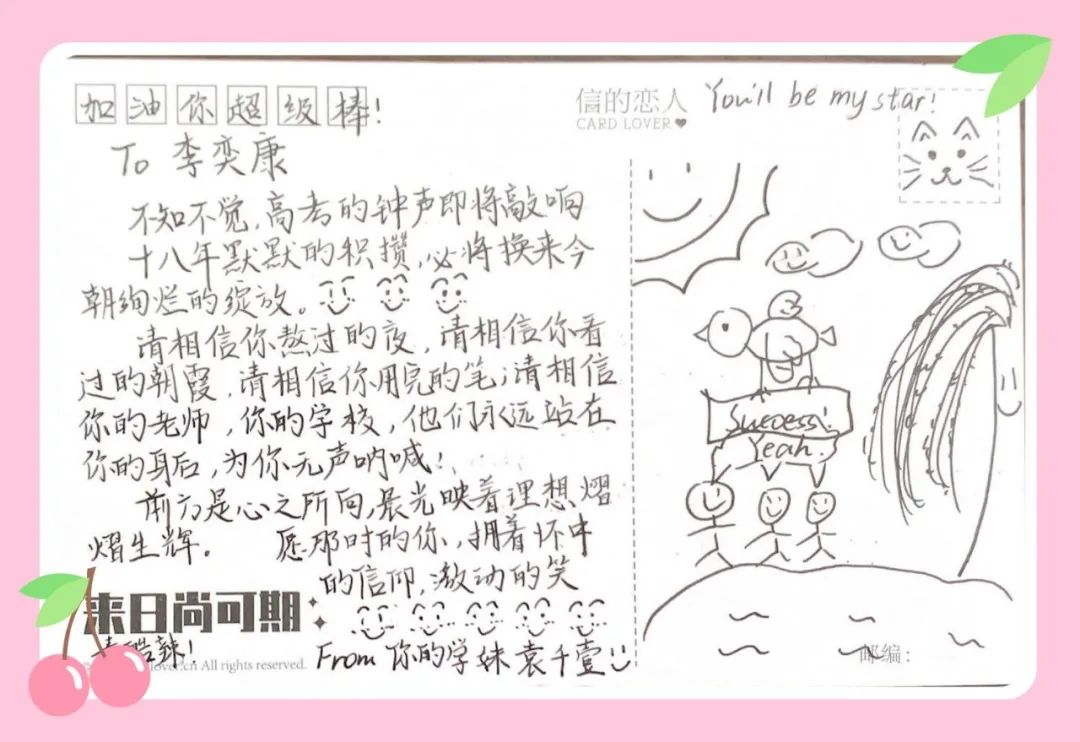 加油你超级棒!
信的恋人
CARD LOVER
You'll be my star!
To 李奕康
不知不觉,高考的钟声即将敲响
十八年默默的积攒,必将换来今
朝绚烂的绽放。
请相信你熬过的夜,请相信你看
过的朝霞,请相信你用完的笔;请相信
你的老师,你的学校,他们永远站在
你的身后,为你无声呐喊!
前方是心之所向,晨光映着理想熠
熠生辉。 愿那时的你,拥着怀中
的信仰,激动的笑
来日尚可期
酷辣!
lover.cn All rights reserved.
From 你的学妹 袁千壹
Success!
Yeah.
邮编: